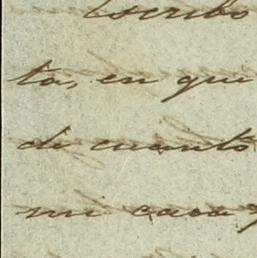 Escribo
ta, en que
de cuanto
mi casa y